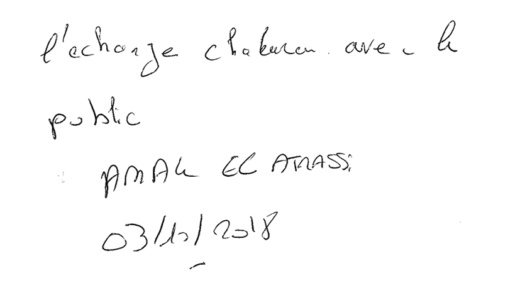 l'echange chaleureux avec le
public
AMAL EL ATRASSI
03/10/2018